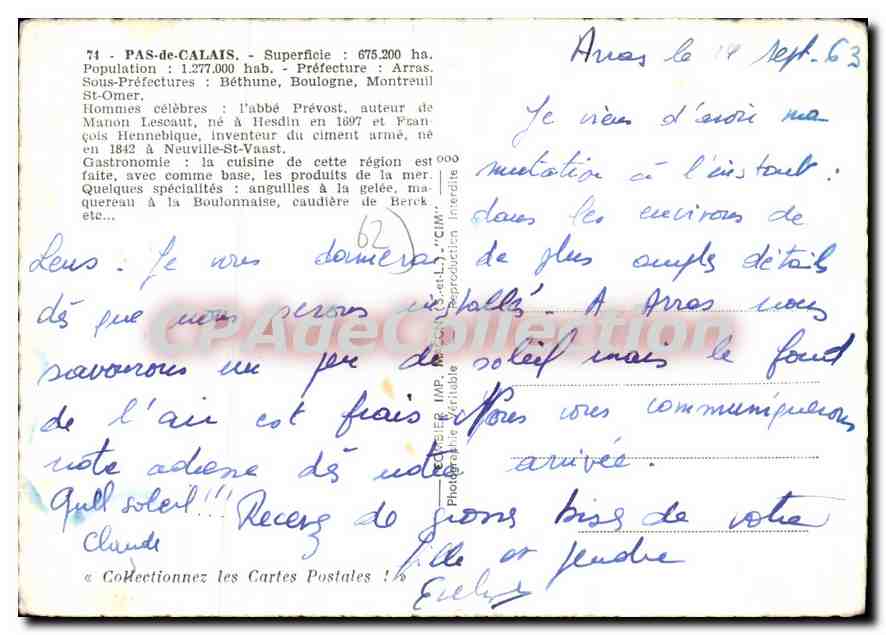 74 - PAS-de-CALAIS. - Superficie : 675.200 ha.
Population : 1.277.000 hab. - Préfecture : Arras.
Sous-Préfectures : Béthune, Boulogne, Montreuil
St-Omer.
Hommes célèbres : l'abbé Prévost, auteur de
Manon Lescaut, né à Hesdin en 1697 et Fran-
çois Hennebique, inventeur du ciment armé, né
en 1842 à Neuville-St-Vaast.
Gastronomie : la cuisine de cette région est
faite, avec comme base, les produits de la mer.
Quelques spécialités : anguilles à la gelée, ma-
quereau à la Boulonnaise, caudière de Berck
etc...
62)
Arras le 14 sept. 63
Je viens d'avoir ma
mutation à l'instant :
dans les environs de
Lens. Je vous donnerai de plus amples détails
dès que nous serons installés. A Arras nous
savourons un peu de soleil mais le fond
de l'air est frais. Nous vous communiquerons
notre adresse dès notre arrivée.
Quel soleil !!! Recevez de grosses bises de votre
fille et gendre
Claude
Evelyne
« Collectionnez les Cartes Postales ! »
COMBIER IMP. MACON (S.-et-L.) - "CIM"
Photographie Véritable - Reproduction Interdite
CPAdeCollection